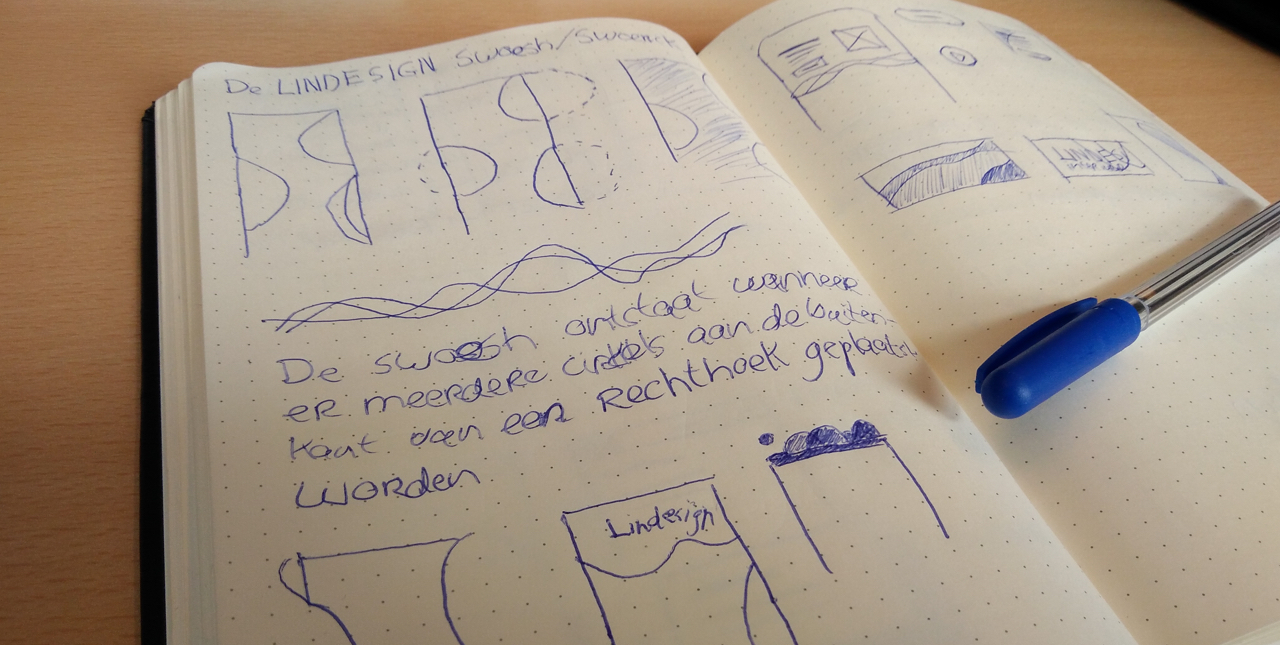 De LINDESIGN Swoesh/
De swoesh ontstaat wanneer
er meerdere cirkels aan de buiten-
kant van een Rechthoek geplaatst
worden
Lindesign